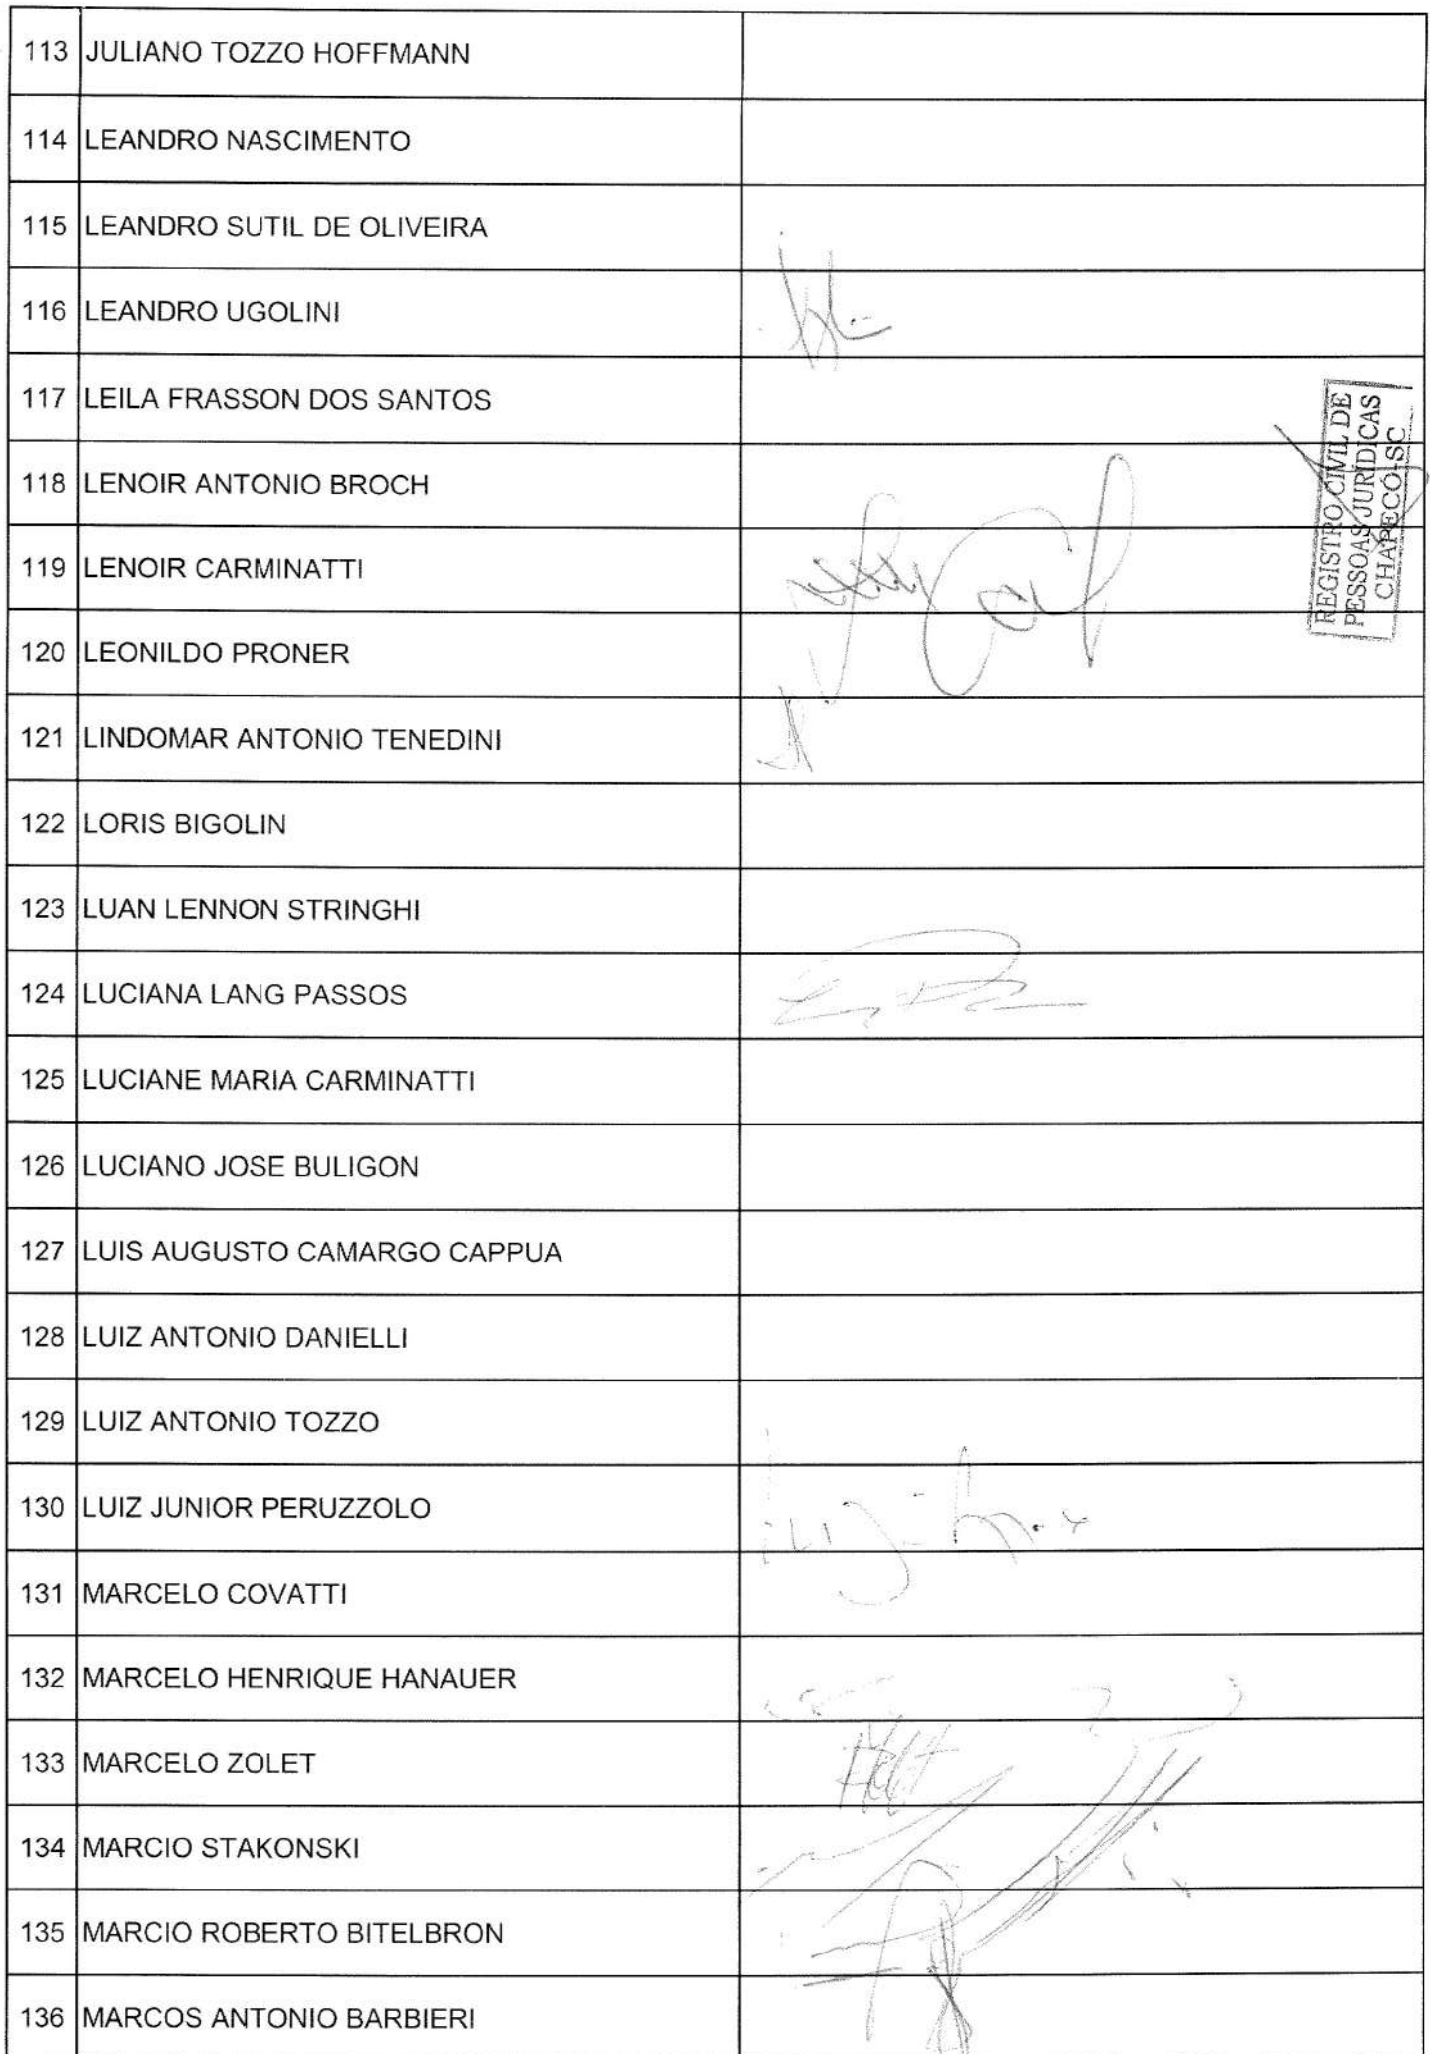 113 JULIANO TOZZO HOFFMANN
114 LEANDRO NASCIMENTO
115 LEANDRO SUTIL DE OLIVEIRA
116 LEANDRO UGOLINI
117 LEILA FRASSON DOS SANTOS
118 LENOIR ANTONIO BROCH
119 LENOIR CARMINATTI
120 LEONILDO PRONER
121 LINDOMAR ANTONIO TENEDINI
122 LORIS BIGOLIN
123 LUAN LENNON STRINGHI
124 LUCIANA LANG PASSOS
125 LUCIANE MARIA CARMINATTI
126 LUCIANO JOSE BULIGON
127 LUIS AUGUSTO CAMARGO CAPPUA
128 LUIZ ANTONIO DANIELLI
129 LUIZ ANTONIO TOZZO
130 LUIZ JUNIOR PERUZZOLO
131 MARCELO COVATTI
132 MARCELO HENRIQUE HANAUER
133 MARCELO ZOLET
134 MARCIO STAKONSKI
135 MARCIO ROBERTO BITELBRON
136 MARCOS ANTONIO BARBIERI
REGISTRO CIVIL DE
PESSOAS JURÍDICAS
CHAPECÓ-SC